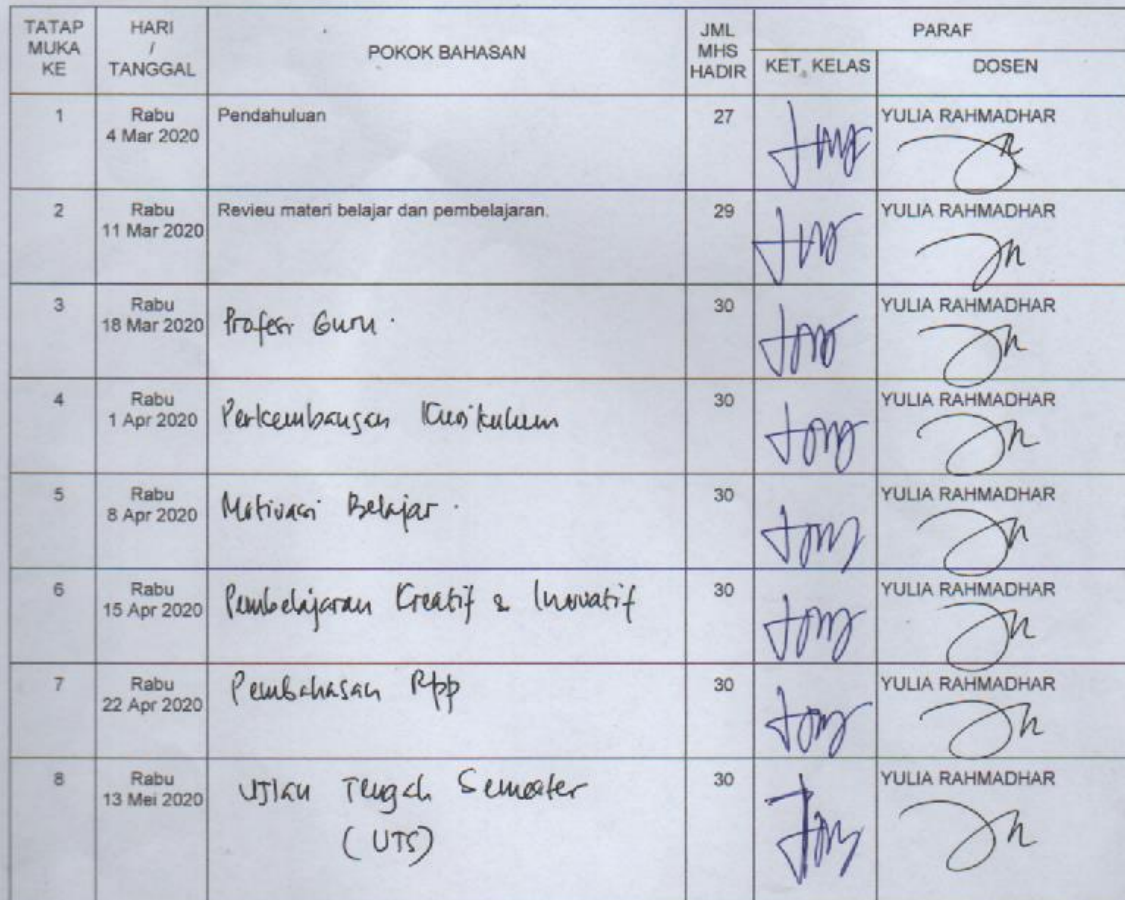 TATAP MUKA KE
HARI / TANGGAL
POKOK BAHASAN
JML MHS HADIR
PARAF
KET. KELAS
DOSEN
1
Rabu
4 Mar 2020
Pendahuluan
27
YULIA RAHMADHAR
2
Rabu
11 Mar 2020
Revieu materi belajar dan pembelajaran.
29
YULIA RAHMADHAR
3
Rabu
18 Mar 2020
Profesi Guru.
30
YULIA RAHMADHAR
4
Rabu
1 Apr 2020
Perkembangan Kurikulum
30
YULIA RAHMADHAR
5
Rabu
8 Apr 2020
Motivasi Belajar.
30
YULIA RAHMADHAR
6
Rabu
15 Apr 2020
Pembelajaran Kreatif & Inovatif
30
YULIA RAHMADHAR
7
Rabu
22 Apr 2020
Pembahasan Rpp
30
YULIA RAHMADHAR
8
Rabu
13 Mei 2020
Ujian Tengah Semester
(UTS)
30
YULIA RAHMADHAR